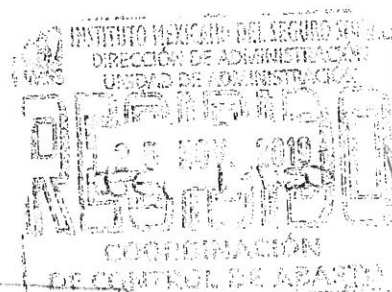 INSTITUTO MEXICANO DEL SEGURO
DIRECCIÓN DE ADMINISTRACIÓN
UNIDAD DE ADMINISTRACIÓN
NOV. 2019
COORDINACIÓN
DE CONTROL DE ABASTO